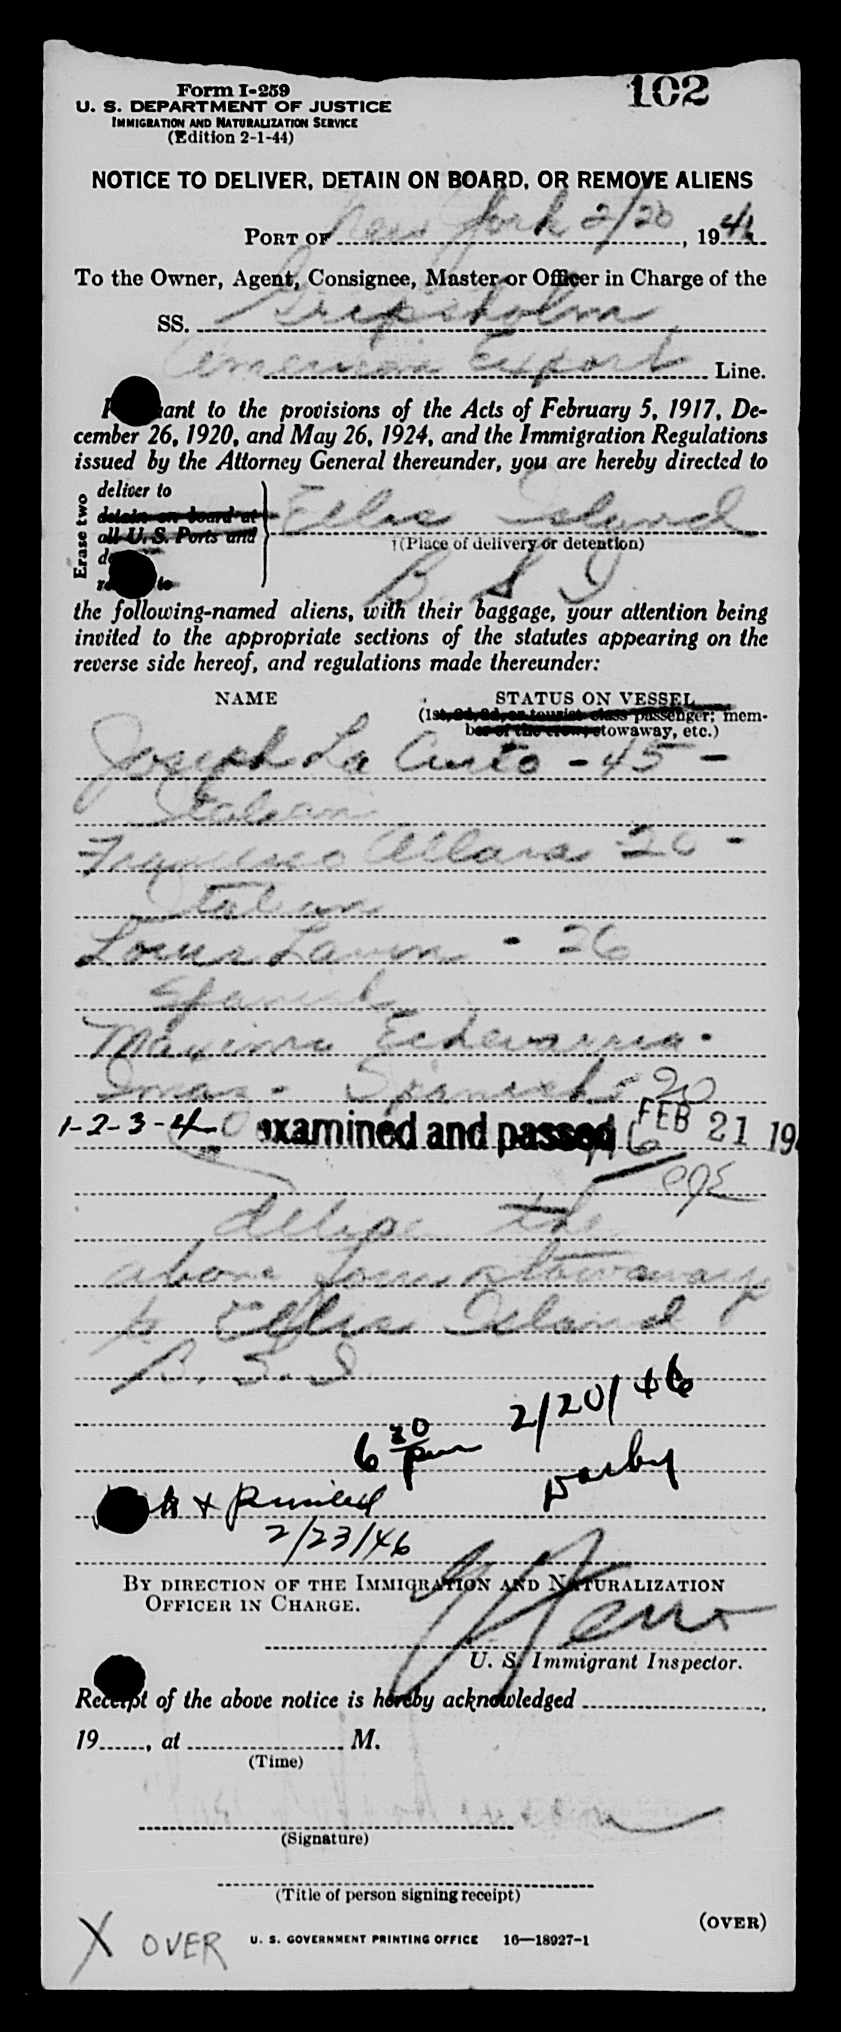 102
Form I-259
U. S. DEPARTMENT OF JUSTICE
IMMIGRATION AND NATURALIZATION SERVICE
(Edition 2-1-44)
NOTICE TO DELIVER, DETAIN ON BOARD, OR REMOVE ALIENS
PORT OF New York 2/20, 1946
To the Owner, Agent, Consignee, Master or Officer in Charge of the
SS. Gripsholm
American Export Line.
ant to the provisions of the Acts of February 5, 1917, De-
cember 26, 1920, and May 26, 1924, and the Immigration Regulations
issued by the Attorney General thereunder, you are hereby directed to
Erase two
deliver to
detain on board at
all U. S. Ports and
to
Ellis Island
†(Place of delivery or detention)
B. S. I.
the following-named aliens, with their baggage, your attention being
invited to the appropriate sections of the statutes appearing on the
reverse side hereof, and regulations made thereunder:
NAME STATUS ON VESSEL
(1st, 2d, 3d, or tourist class passenger; mem-
ber of the crew, stowaway, etc.)
Joseph La Curto - 45 -
Italian
Francisco Allara 26 -
Italian
Louis Lavin - 26
Spanish
Maximo Echevarria -
Spanish - 20
1-2-3-4 examined and passed FEB 21 19
the
above four stowaways
to Ellis Island
B. S. I.
6 30 pm 2/20/46
Darby
2/23/46
BY DIRECTION OF THE IMMIGRATION AND NATURALIZATION
OFFICER IN CHARGE.
U. S. Immigrant Inspector.
Receipt of the above notice is hereby acknowledged
19, at M.
(Time)
(Signature)
(Title of person signing receipt)
(OVER)
X OVER U. S. GOVERNMENT PRINTING OFFICE 16—18927-1